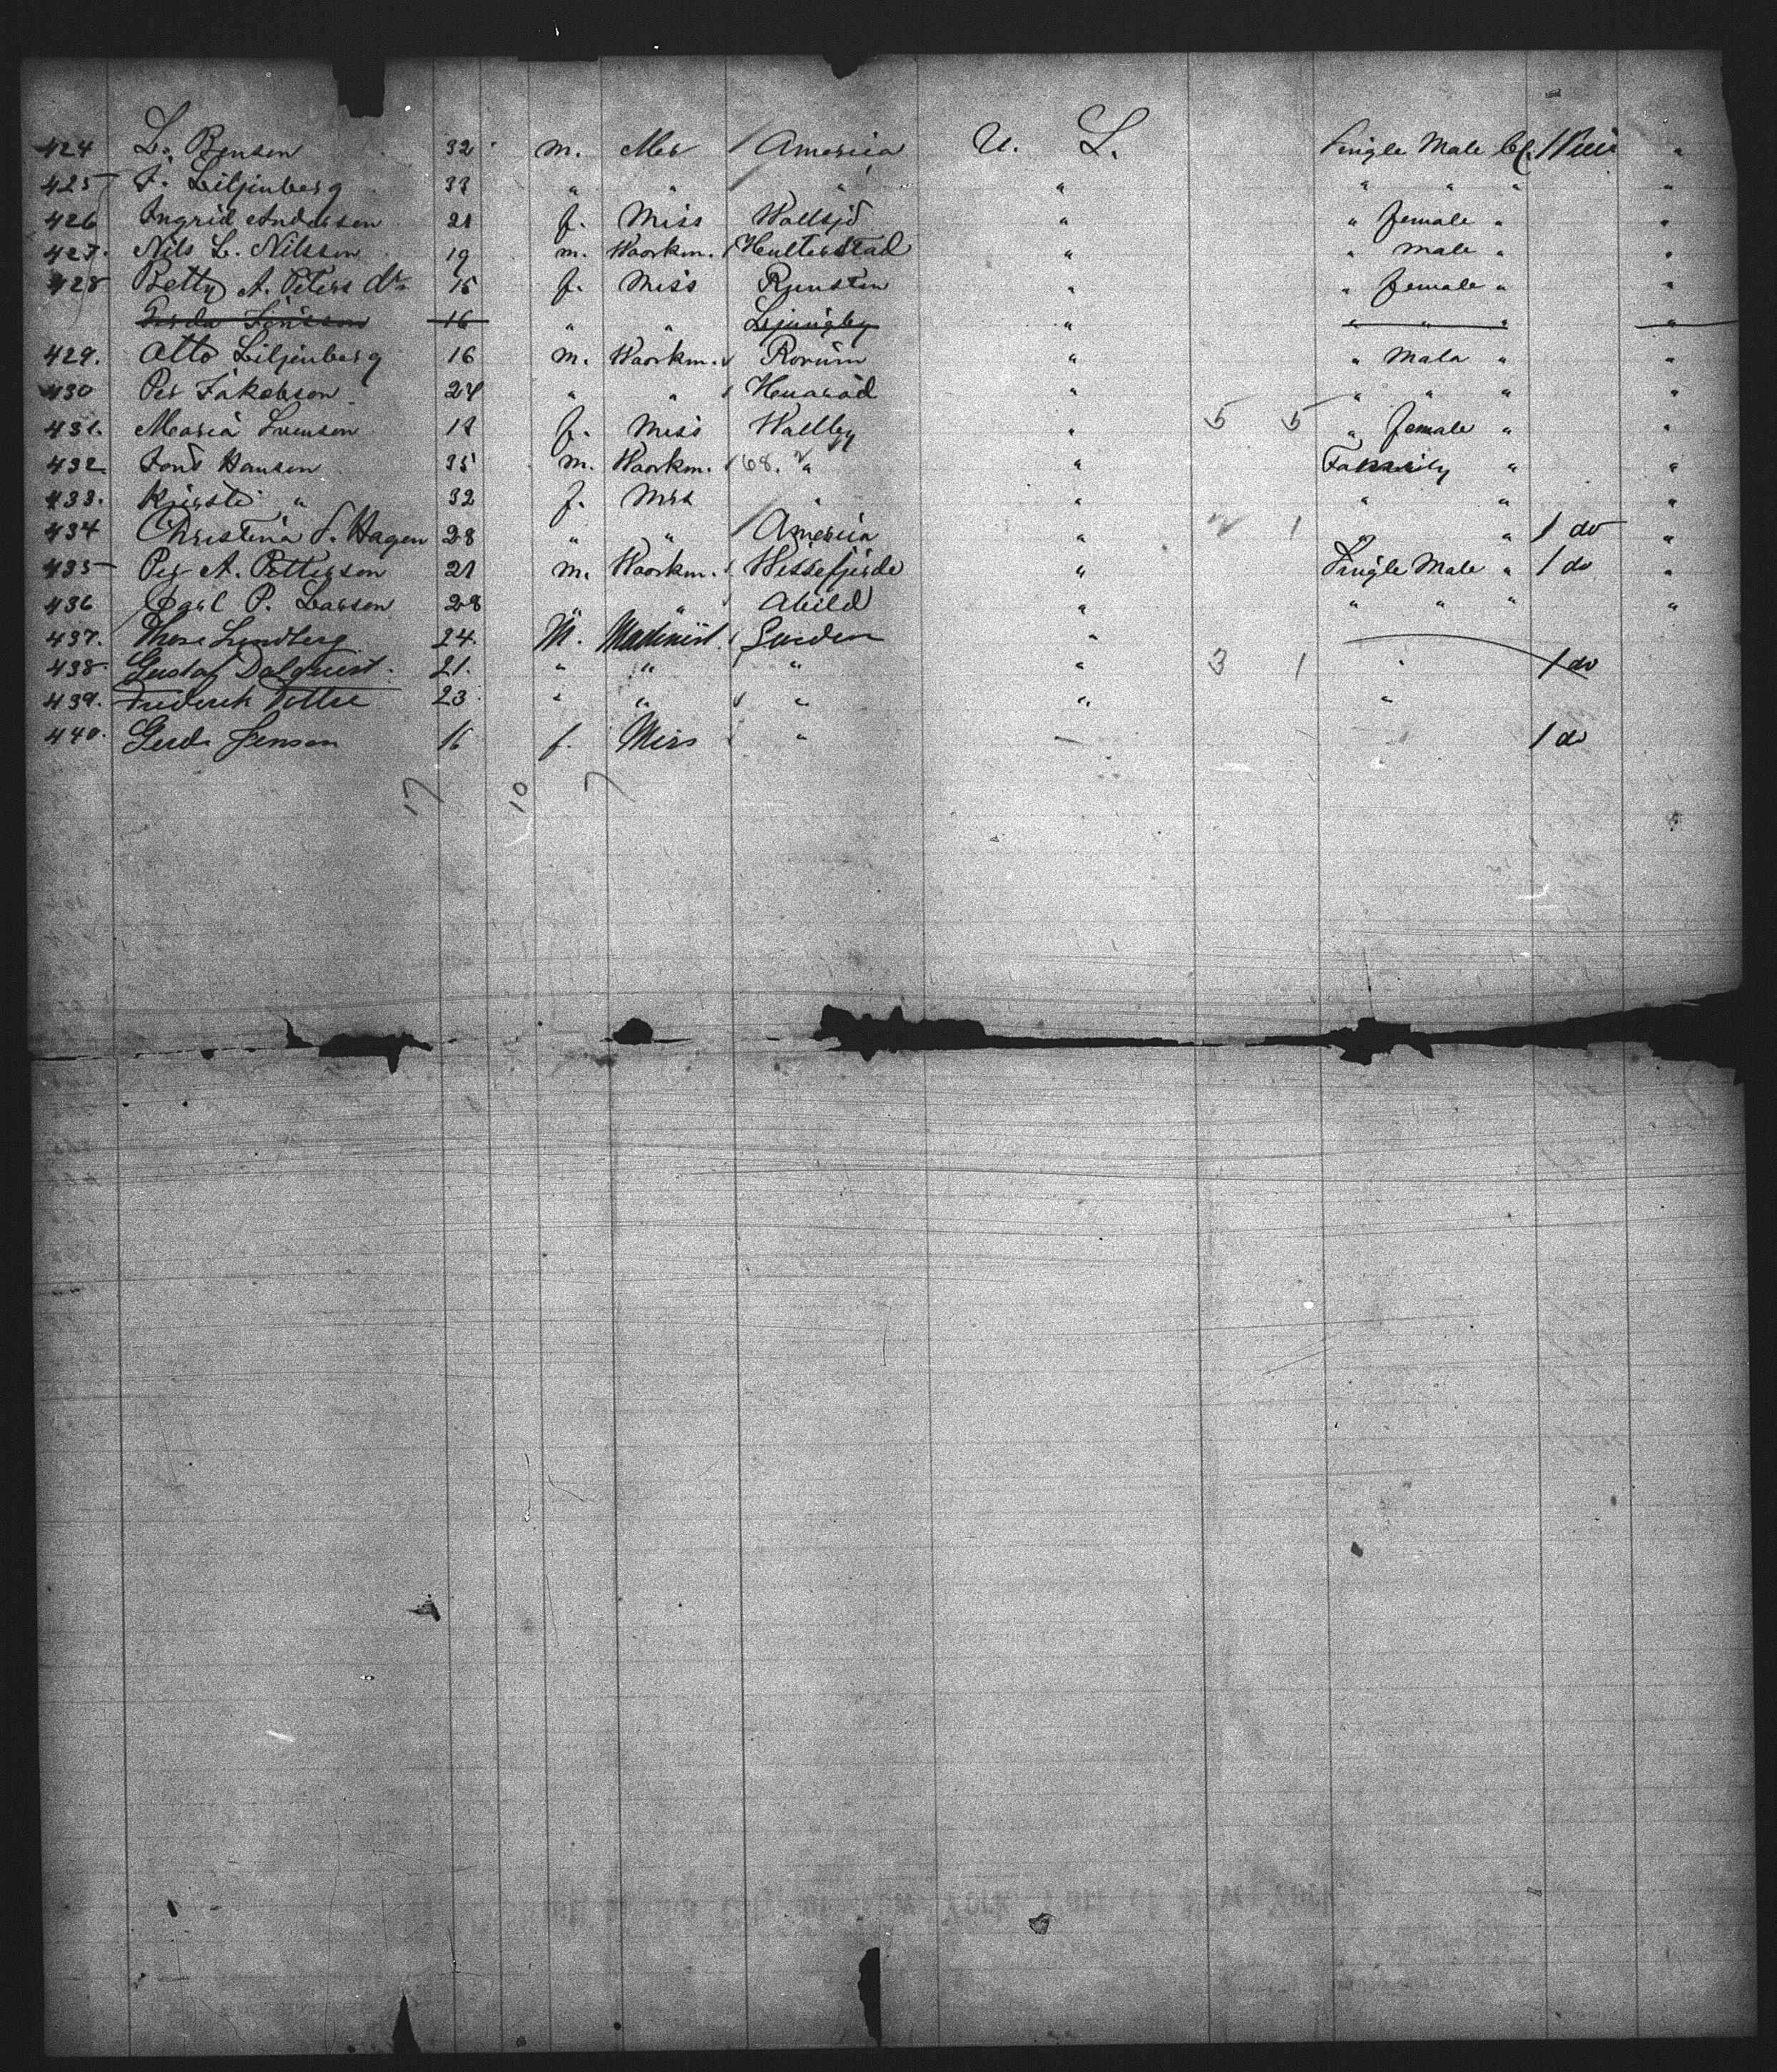 424 L. Bensen 32 m. Mer America U. S. Single Male 1 "
425 F. Liljenberg 33 " " " " " " " "
426 Ingrid Andersen 21 f. Miss Wallsjö " " female " "
427. Nils L. Nilsson 19 m. Woorkm. Hulterstad " " male " "
428 Betty A. Peters dtr 15 f. Miss Runsten " " female " "
Gerda Jönsson 16 " " Ljungby " " " " "
429. Otto Liljenberg 16 m. Woorkm. Rorum " " Male " "
430 Per Jakobson 24 " " " " " " "
431. Maria Svenson 18 f. Miss Wallby " 5 5 " female " "
432. Jöns Hansen 35 m. Woorkm. 68. " " Family " "
433. Kjersti " 32 f. Mrs " " " " "
434 Christina S. Hagen 28 " " America " 2 1 " " 1 do "
435 Per A. Petterson 21 m. Woorkm. " Single Male " 1 do "
436 Carl P. Larson 28 " " Abild " " " " "
437. Lundberg 24. M. Machinist Sweden "
438. Gustaf Dalquist. 21. " " " " 3 1 " 1 do
439. Frederik 23. " " " " "
440. Gerda Jensen 16 f. Miss " " 1 do
17 10 7